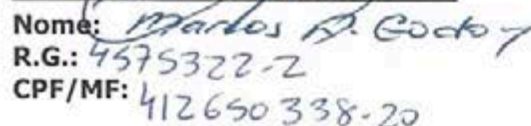 Nome: Marlos A. Godoy
R.G.: 4575322-2
CPF/MF: 412650338-20